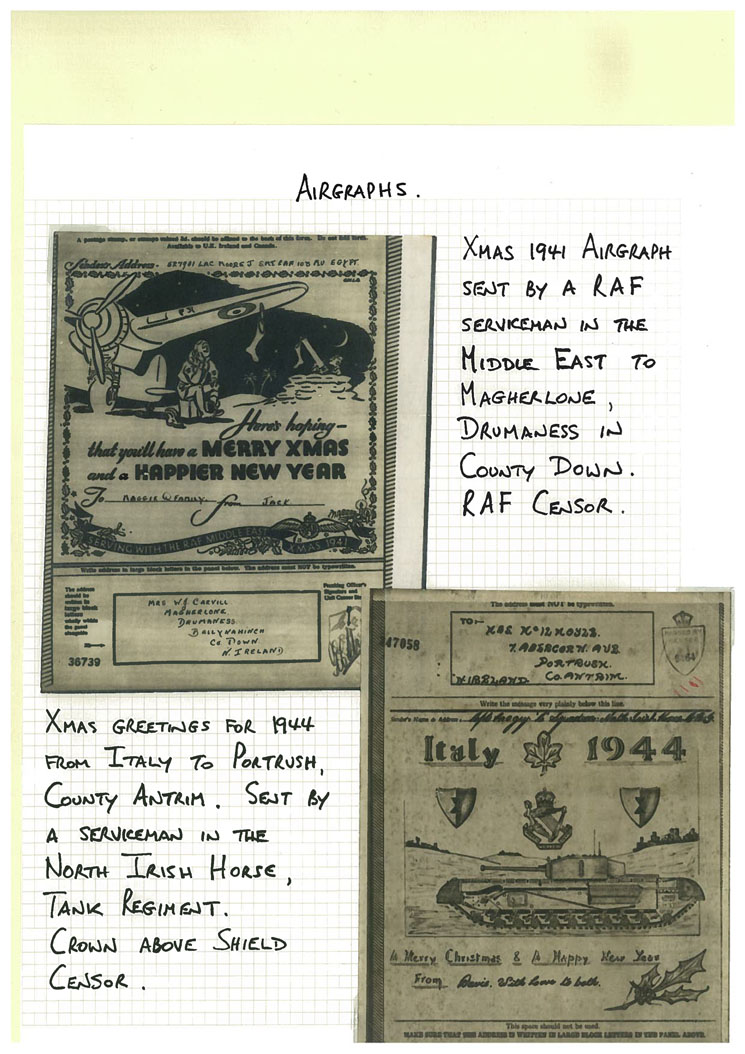 AIRGRAPHS.
A postage stamp, or stamps valued 3d. should be affixed to the back of this form. Do not fold form.
Available to U.K. Ireland and Canada.
Senders Address. 527901 LAC MOORE J. EGYPT.
Here's hoping—
that you'll have a MERRY XMAS
and a HAPPIER NEW YEAR
To MAGGIE & FAMILY. from JACK
SERVING WITH THE RAF MIDDLE EAST XMAS 1941
Write address in large block letters in the panel below. The address must NOT be typewritten.
The address
should be
written in
large block
letters
wholly within
the panel
alongside
36739
MRS W.J. CARVILL
MAGHERLONE
DRUMANESS
BALLYNAHINCH
CO DOWN
N. IRELAND
Signature and
XMAS 1941 AIRGRAPH
SENT BY A RAF
SERVICEMAN IN THE
MIDDLE EAST TO
MAGHERLONE,
DRUMANESS IN
COUNTY DOWN.
RAF CENSOR.
XMAS GREETINGS FOR 1944
FROM ITALY TO PORTRUSH,
COUNTY ANTRIM. SENT BY
A SERVICEMAN IN THE
NORTH IRISH HORSE,
TANK REGIMENT.
CROWN ABOVE SHIELD
CENSOR.
The address must NOT be typewritten.
47058
TO:-
PORTRUSH.
CO. ANTRIM.
N. IRELAND
Write the message very plainly below this line.
Sender's Name & Address
Italy 1944
A Merry Christmas & A Happy New Year
From Davis. With love to both.
This space should not be used.
MAKE SURE THAT THE ADDRESS IS WRITTEN IN LARGE BLOCK LETTERS IN THE PANEL ABOVE.